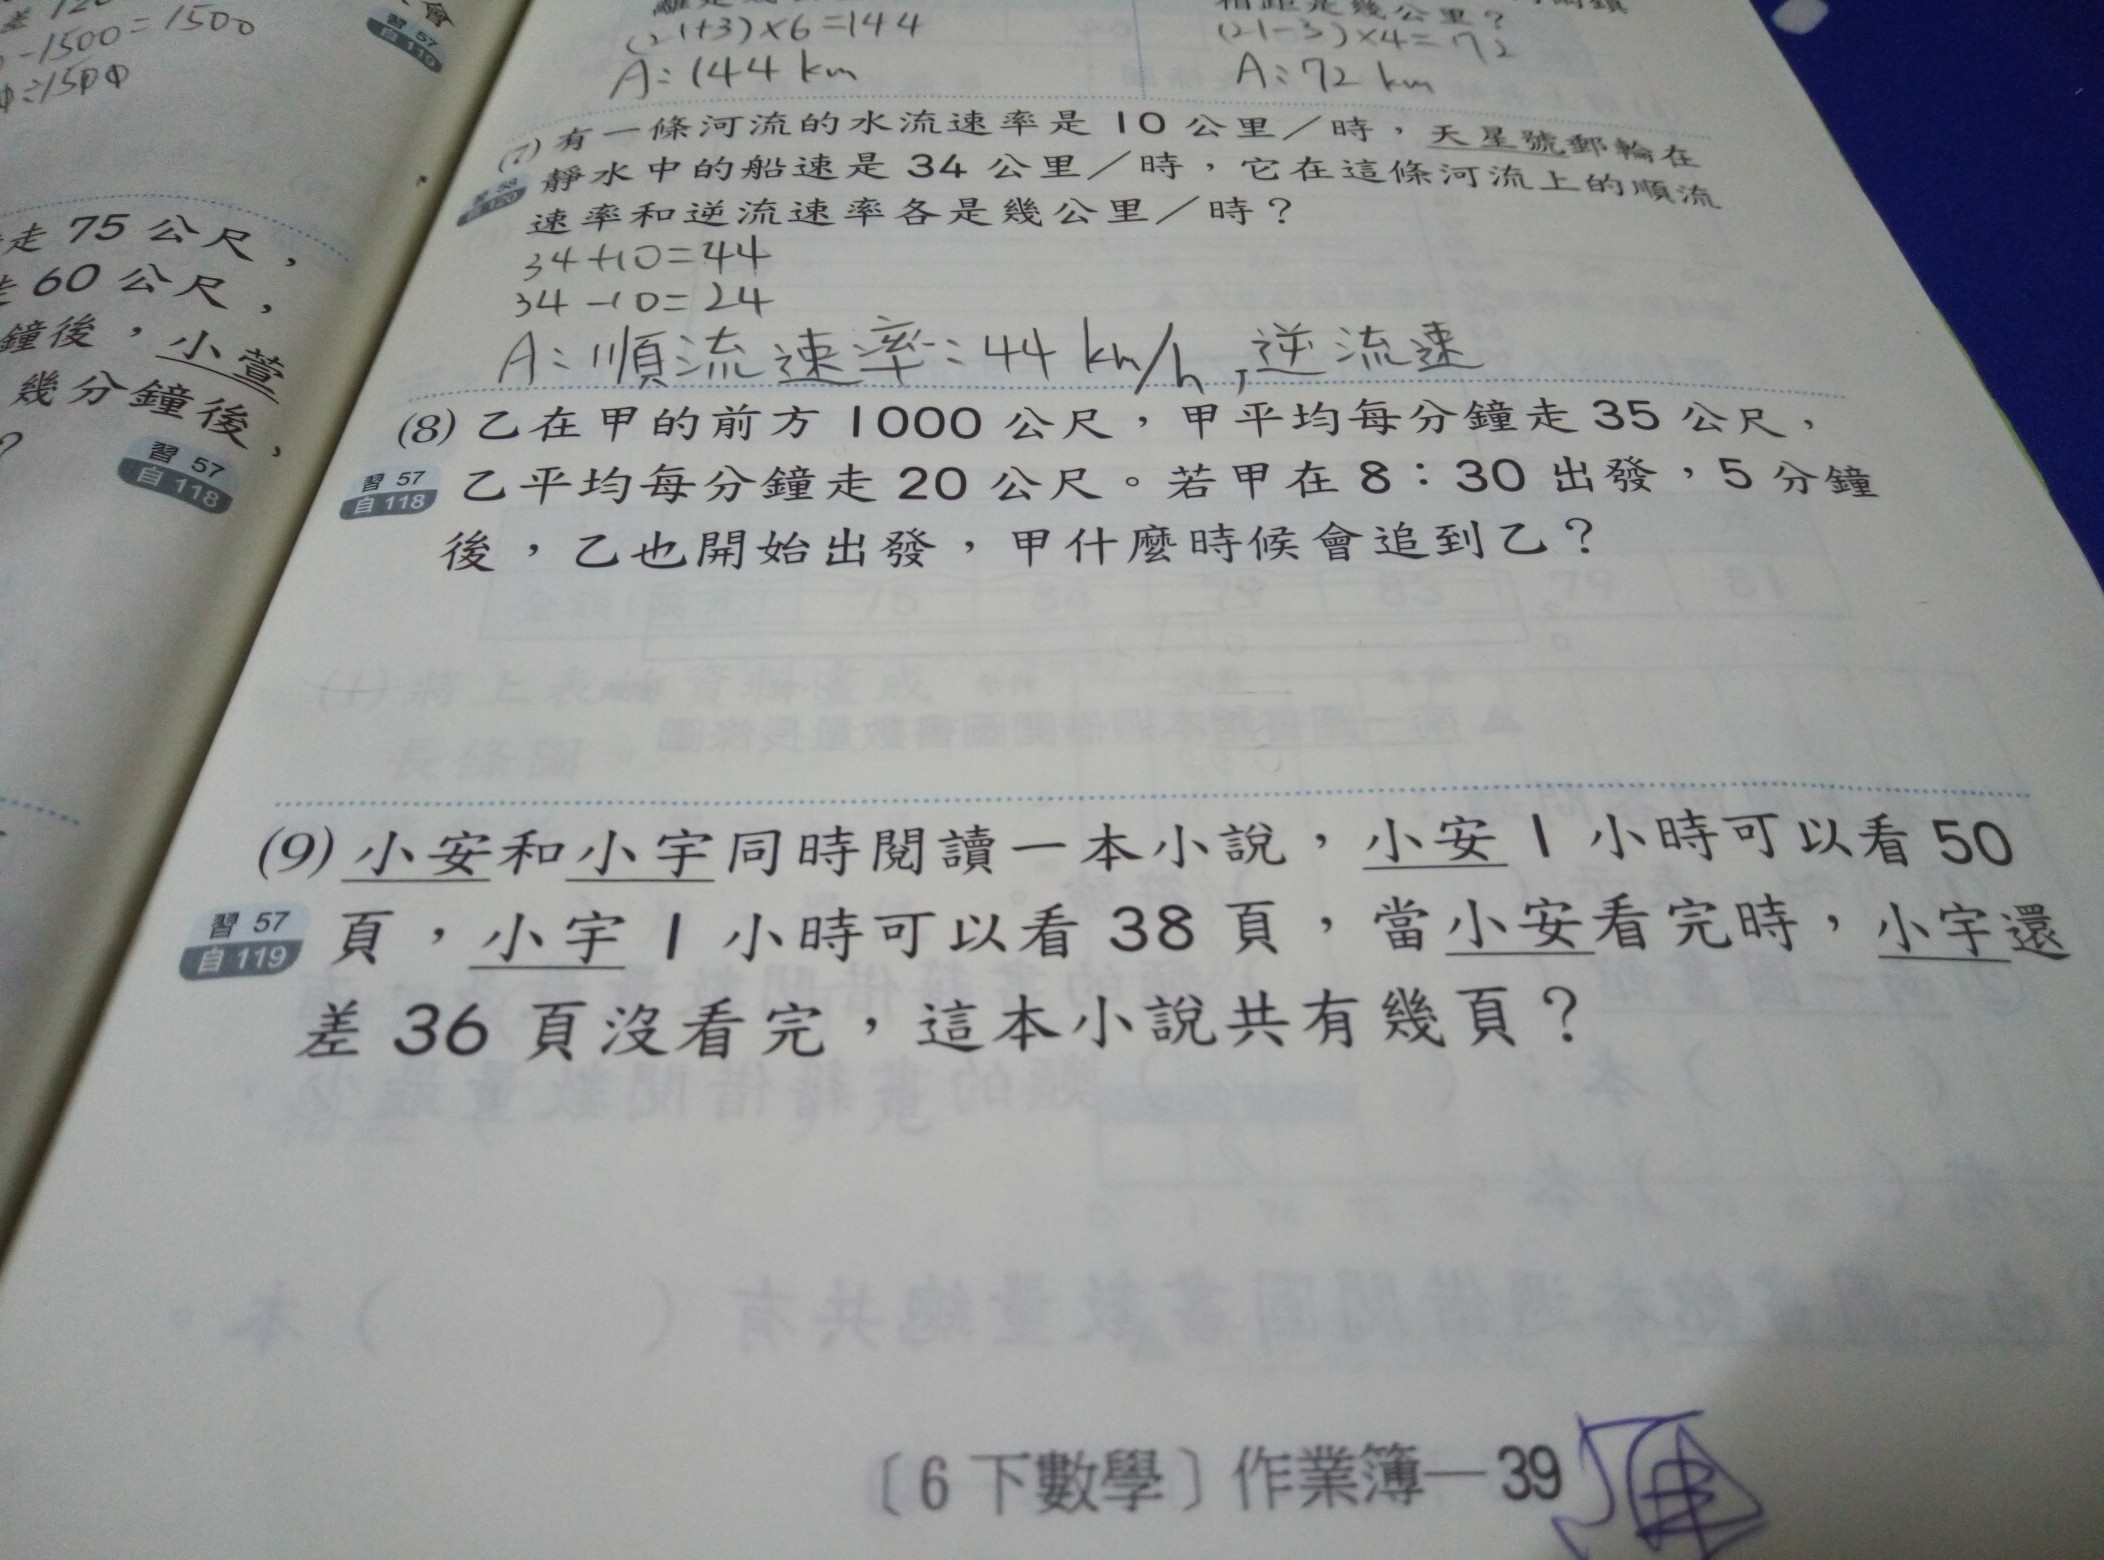 -1500=1500
習 57
自 119
走 75 公尺，
60 公尺，
鐘後，小萱
幾分鐘後，
？
習 57
自 118
(21+3)×6=144
A:144 km
相距是幾公里？
(21-3)×4=72
A:72 km
(7) 有一條河流的水流速率是 10 公里／時，天星號郵輪在
靜水中的船速是 34 公里／時，它在這條河流上的順流
自 120
速率和逆流速率各是幾公里／時？
34+10=44
34-10=24
A:順流速率:44 km/h,逆流速
(8) 乙在甲的前方 1000 公尺，甲平均每分鐘走 35 公尺，
習 57
自 118
乙平均每分鐘走 20 公尺。若甲在 8：30 出發，5 分鐘
後，乙也開始出發，甲什麼時候會追到乙？
(9) 小安和小宇同時閱讀一本小說，小安 1 小時可以看 50
習 57
自 119
頁，小宇 1 小時可以看 38 頁，當小安看完時，小宇還
差 36 頁沒看完，這本小說共有幾頁？
〔6 下數學〕作業簿—39